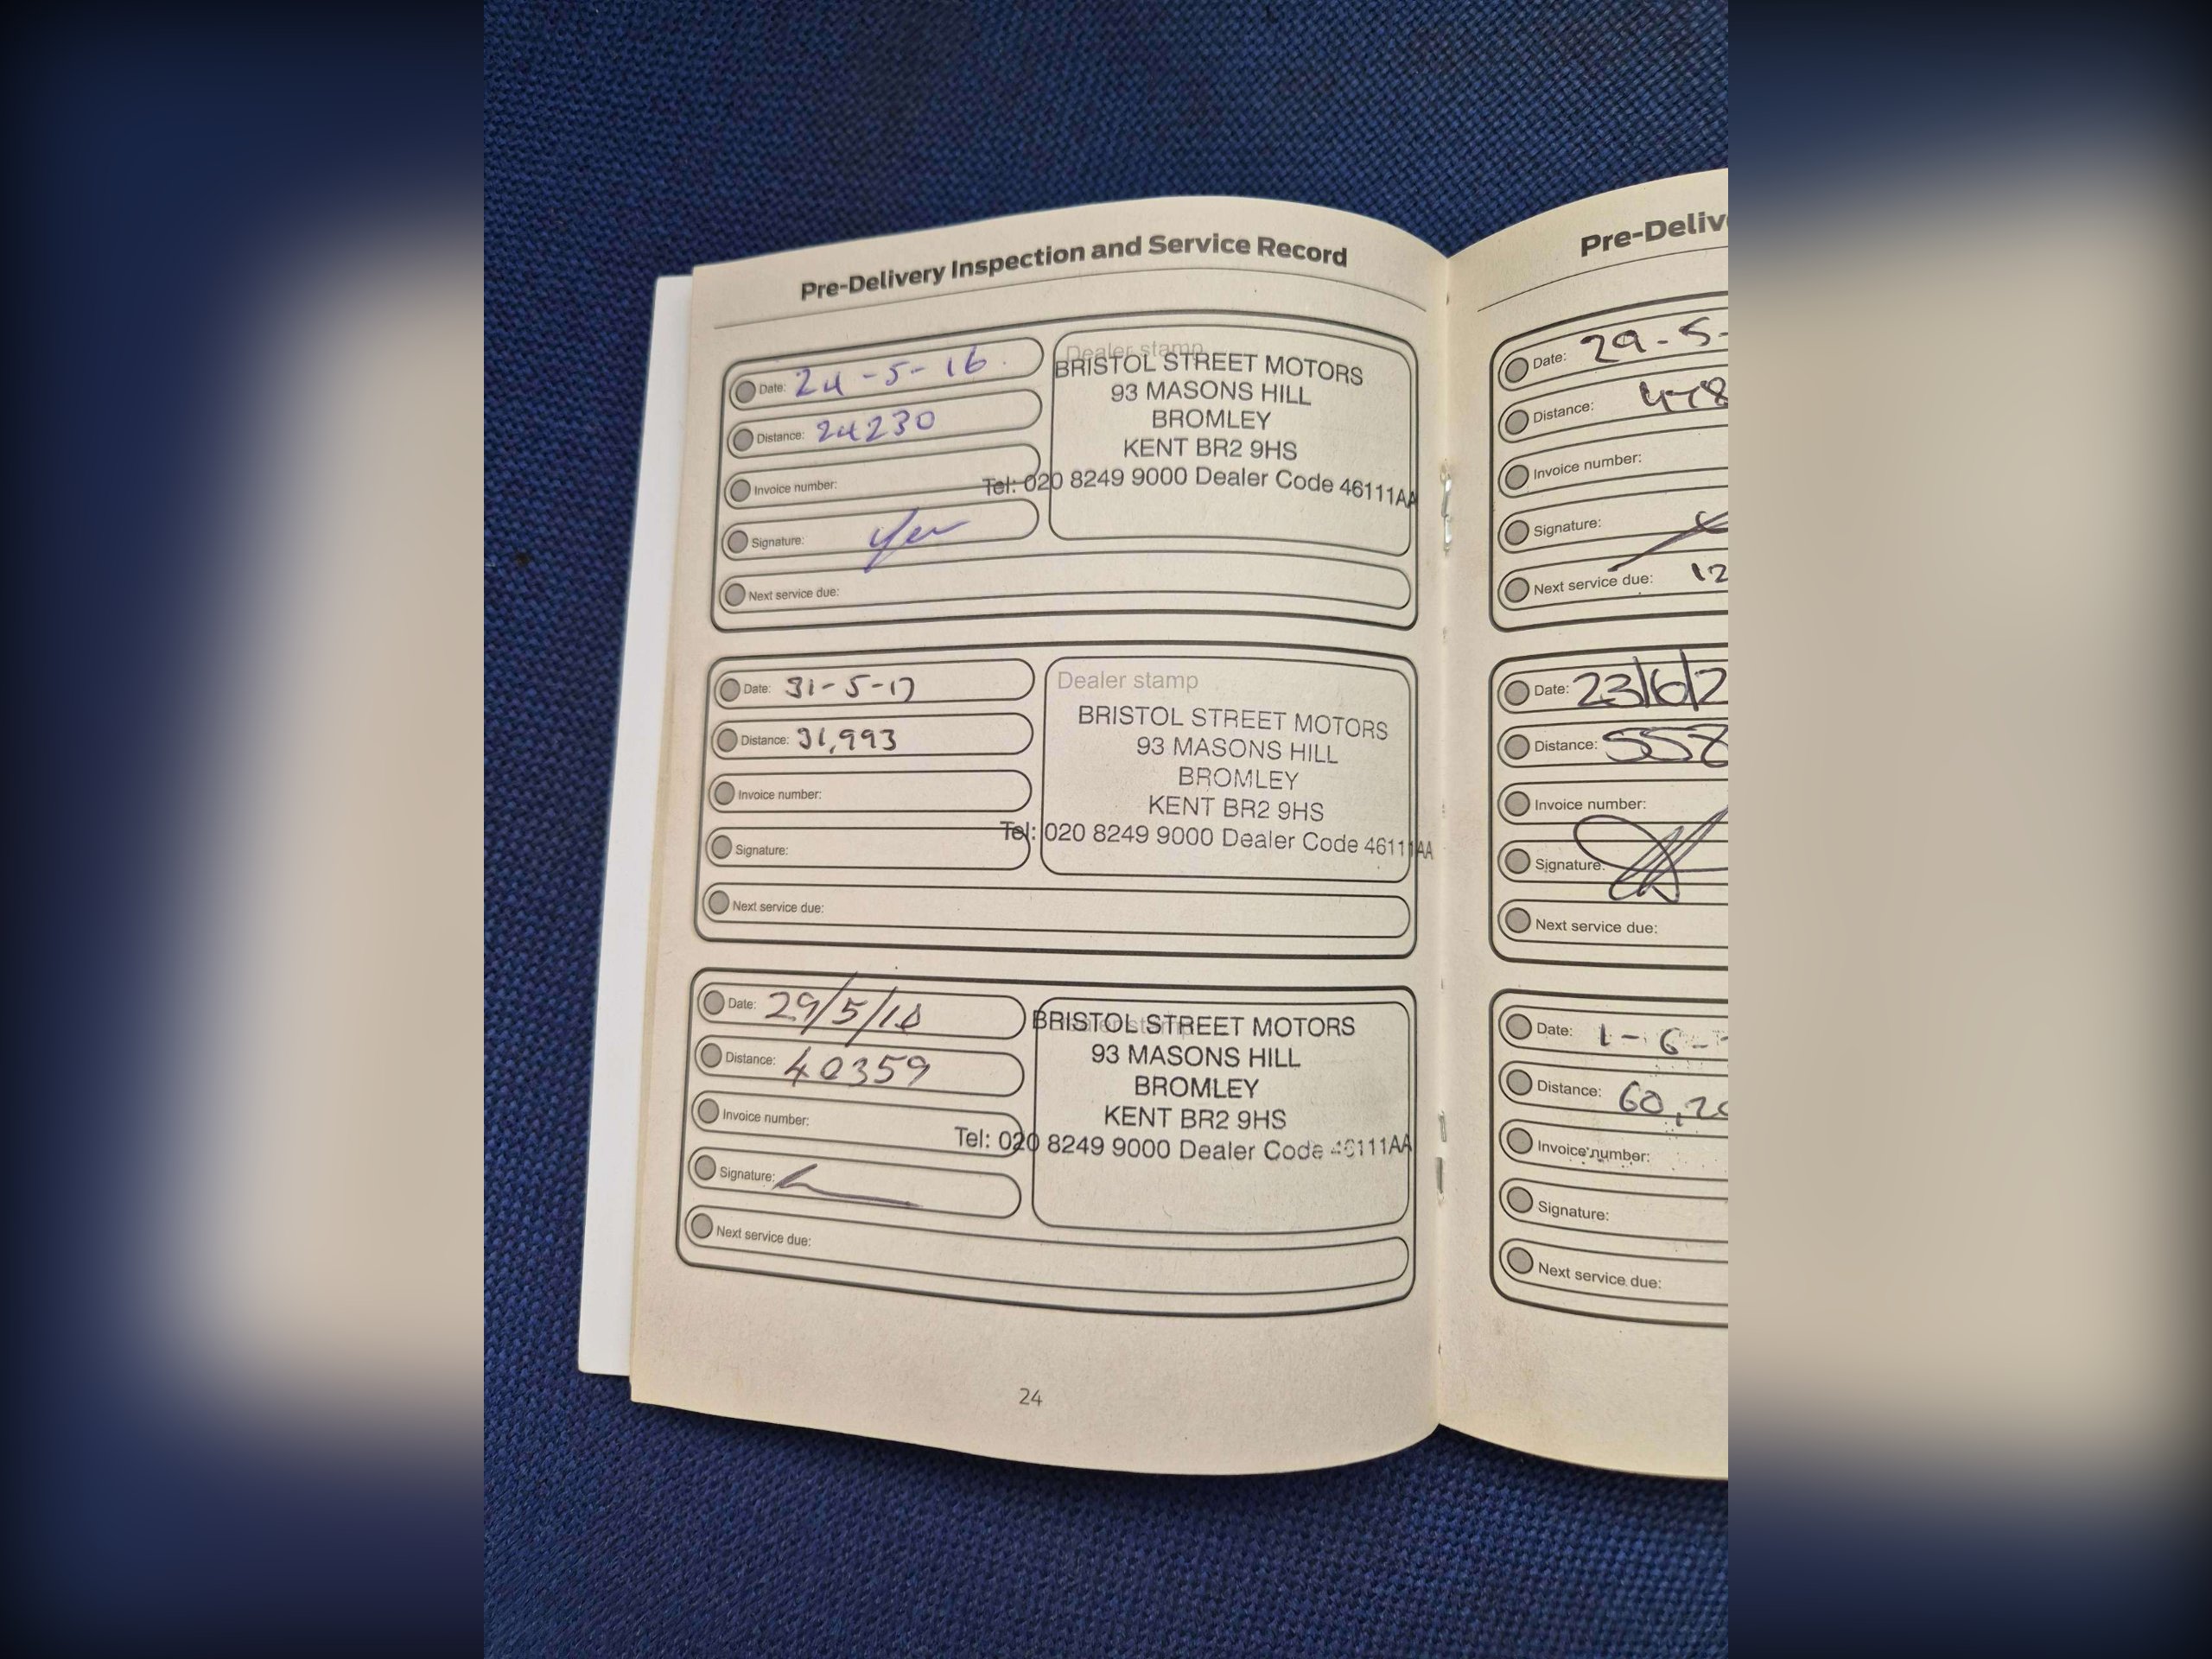 Pre-Delivery Inspection and Service Record
Date: 24-5-16
Distance: 24230
Invoice number:
Signature:
Next service due:
Dealer stamp
BRISTOL STREET MOTORS
93 MASONS HILL
BROMLEY
KENT BR2 9HS
Tel: 020 8249 9000 Dealer Code 46111AA
Date: 31-5-17
Distance: 31,993
Invoice number:
Signature:
Next service due:
Dealer stamp
BRISTOL STREET MOTORS
93 MASONS HILL
BROMLEY
KENT BR2 9HS
Tel: 020 8249 9000 Dealer Code 46111AA
Date: 29/5/18
Distance: 40359
Invoice number:
Signature:
Next service due:
Dealer stamp
BRISTOL STREET MOTORS
93 MASONS HILL
BROMLEY
KENT BR2 9HS
Tel: 020 8249 9000 Dealer Code 46111AA
24
Pre-Deliv
Date: 29-5-
Distance: 478
Invoice number:
Signature:
Next service due: 12
Date: 23/6/2
Distance: 558
Invoice number:
Signature:
Next service due:
Date: 1-6-
Distance: 60,20
Invoice number:
Signature:
Next service due: